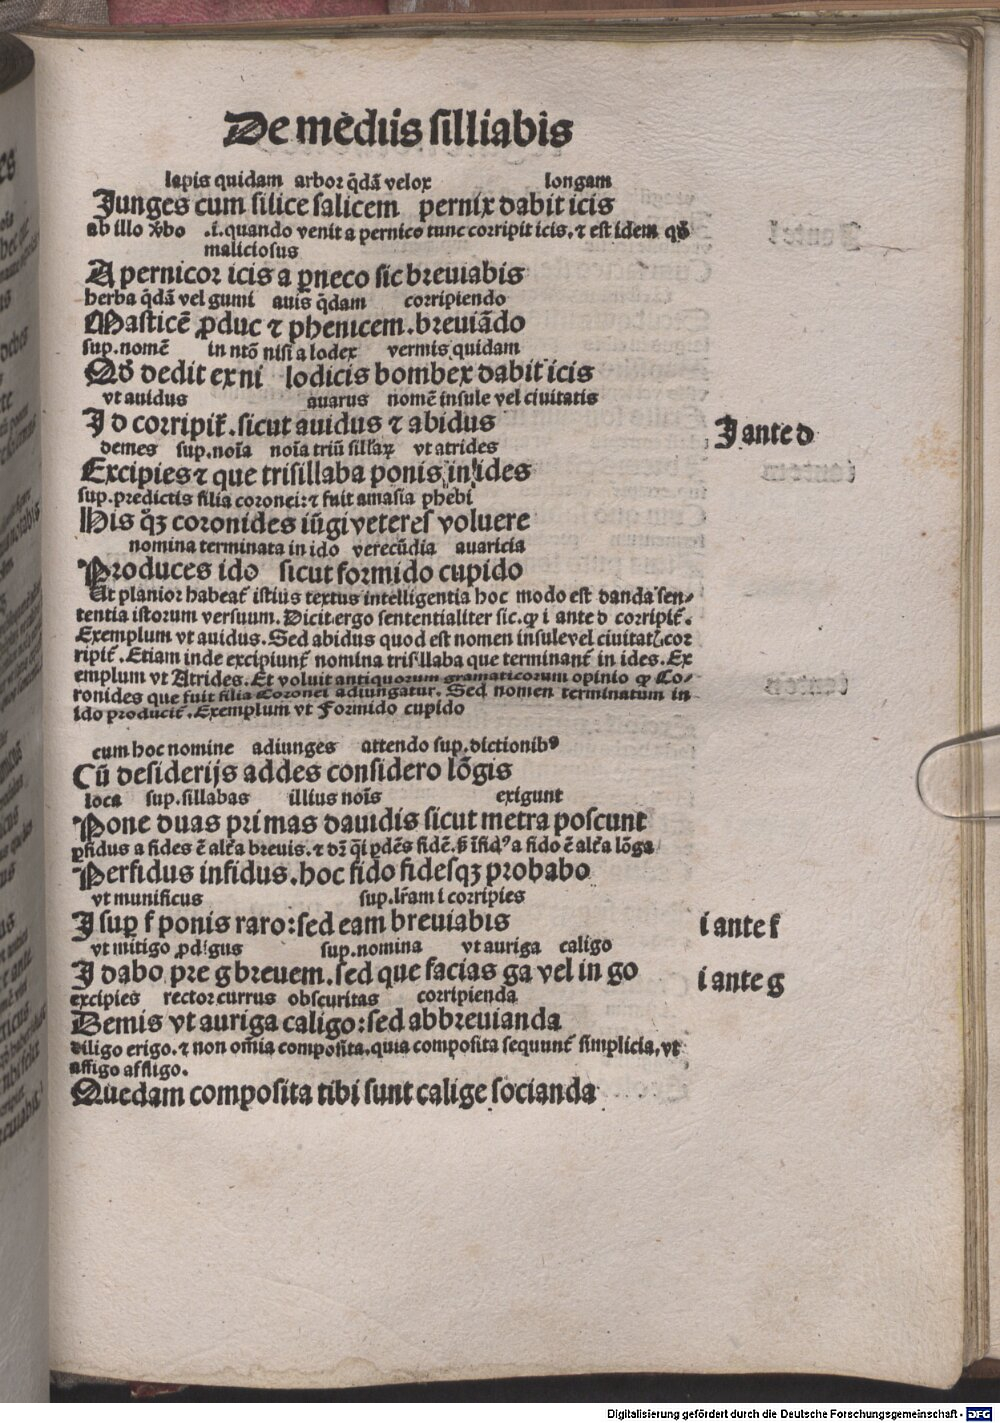 De mēdiis silliabis
lapis quidam arbor q̄dā velox longam
Junges cum silice salicem pernix dabit icis
ab illo v̄bo .i. quando venit a pernico tunc corripit icis. ⁊ est idem qđ
maliciosus
A pernicor icis a ꝑneco sic breuiabis
herba q̄dā vel gumi auis q̄dam corripiendo
Masticē ꝓduc ⁊ phenicem. breuiādo
sup. nomē in ntō nisi a lodex vermis quidam
Qđ dedit ex ni lodicis bombex dabit icis
vt auidus auarus nomē insule vel ciuitatis
I d corripit̄. sicut auidus ⁊ abidus
I ante d
demes sup. noīa noīa triū sillaꝝ vt atrides
Excipies ⁊ que trisillaba ponis in ides
sup. predictis filia coronei: ⁊ fuit amasia phebi
His qꝫ coronides iūgi veteres voluere
nomina terminata in ido verecūdia auaricia
Produces ido sicut formido cupido
Ut planior habeat̄ istius textus intelligentia hoc modo est danda sen⸗
tentia istorum versuum. Dicit ergo sententialiter sic. ꝙ i ante d corripit̄.
Exemplum vt auidus. Sed abidus quod est nomen insule vel ciuitatꝭ cor
ripit̄. Etiam inde excipiunt̄ nomina trisillaba que terminant̄ in ides. Ex
emplum vt Atrides. Et voluit antiquorum gramaticorum opinio ꝙ Co⸗
ronides que fuit filia Coronei adiungatur. Sed nomen terminatum in
ido producit̄. Exemplum vt Formido cupido
cum hoc nomine adiunges attendo sup. dictionibꝰ
Cū desiderijs addes considero lōgis
loca sup. sillabas illius noīs exigunt
Pone duas primas dauidis sicut metra poscunt
ꝑfidus a fides ē alt̄a breuis. ⁊ dr̄ q̄i ꝑdēs fidē. ß īfidꝰ a fido ē alt̄a lōga
Perfidus infidus. hoc fido fidesqꝫ probabo
vt munificus sup. lr̄am i corripies
I suꝑ f ponis raro: sed eam breuiabis
i ante f
vt mitigo ꝓdigus sup. nomina vt auriga caligo
I dabo pre g breuem. sed que facias ga vel in go
i ante g
excipies rector currus obscuritas corripienda
Demis vt auriga caligo: sed abbreuianda
diligo erigo. ⁊ non om̄ia composita. quia composita sequunt̄ simplicia, vt
affigo affligo.
Quedam composita tibi sunt calige socianda
Digitalisierung gefördert durch die Deutsche Forschungsgemeinschaft - DFG